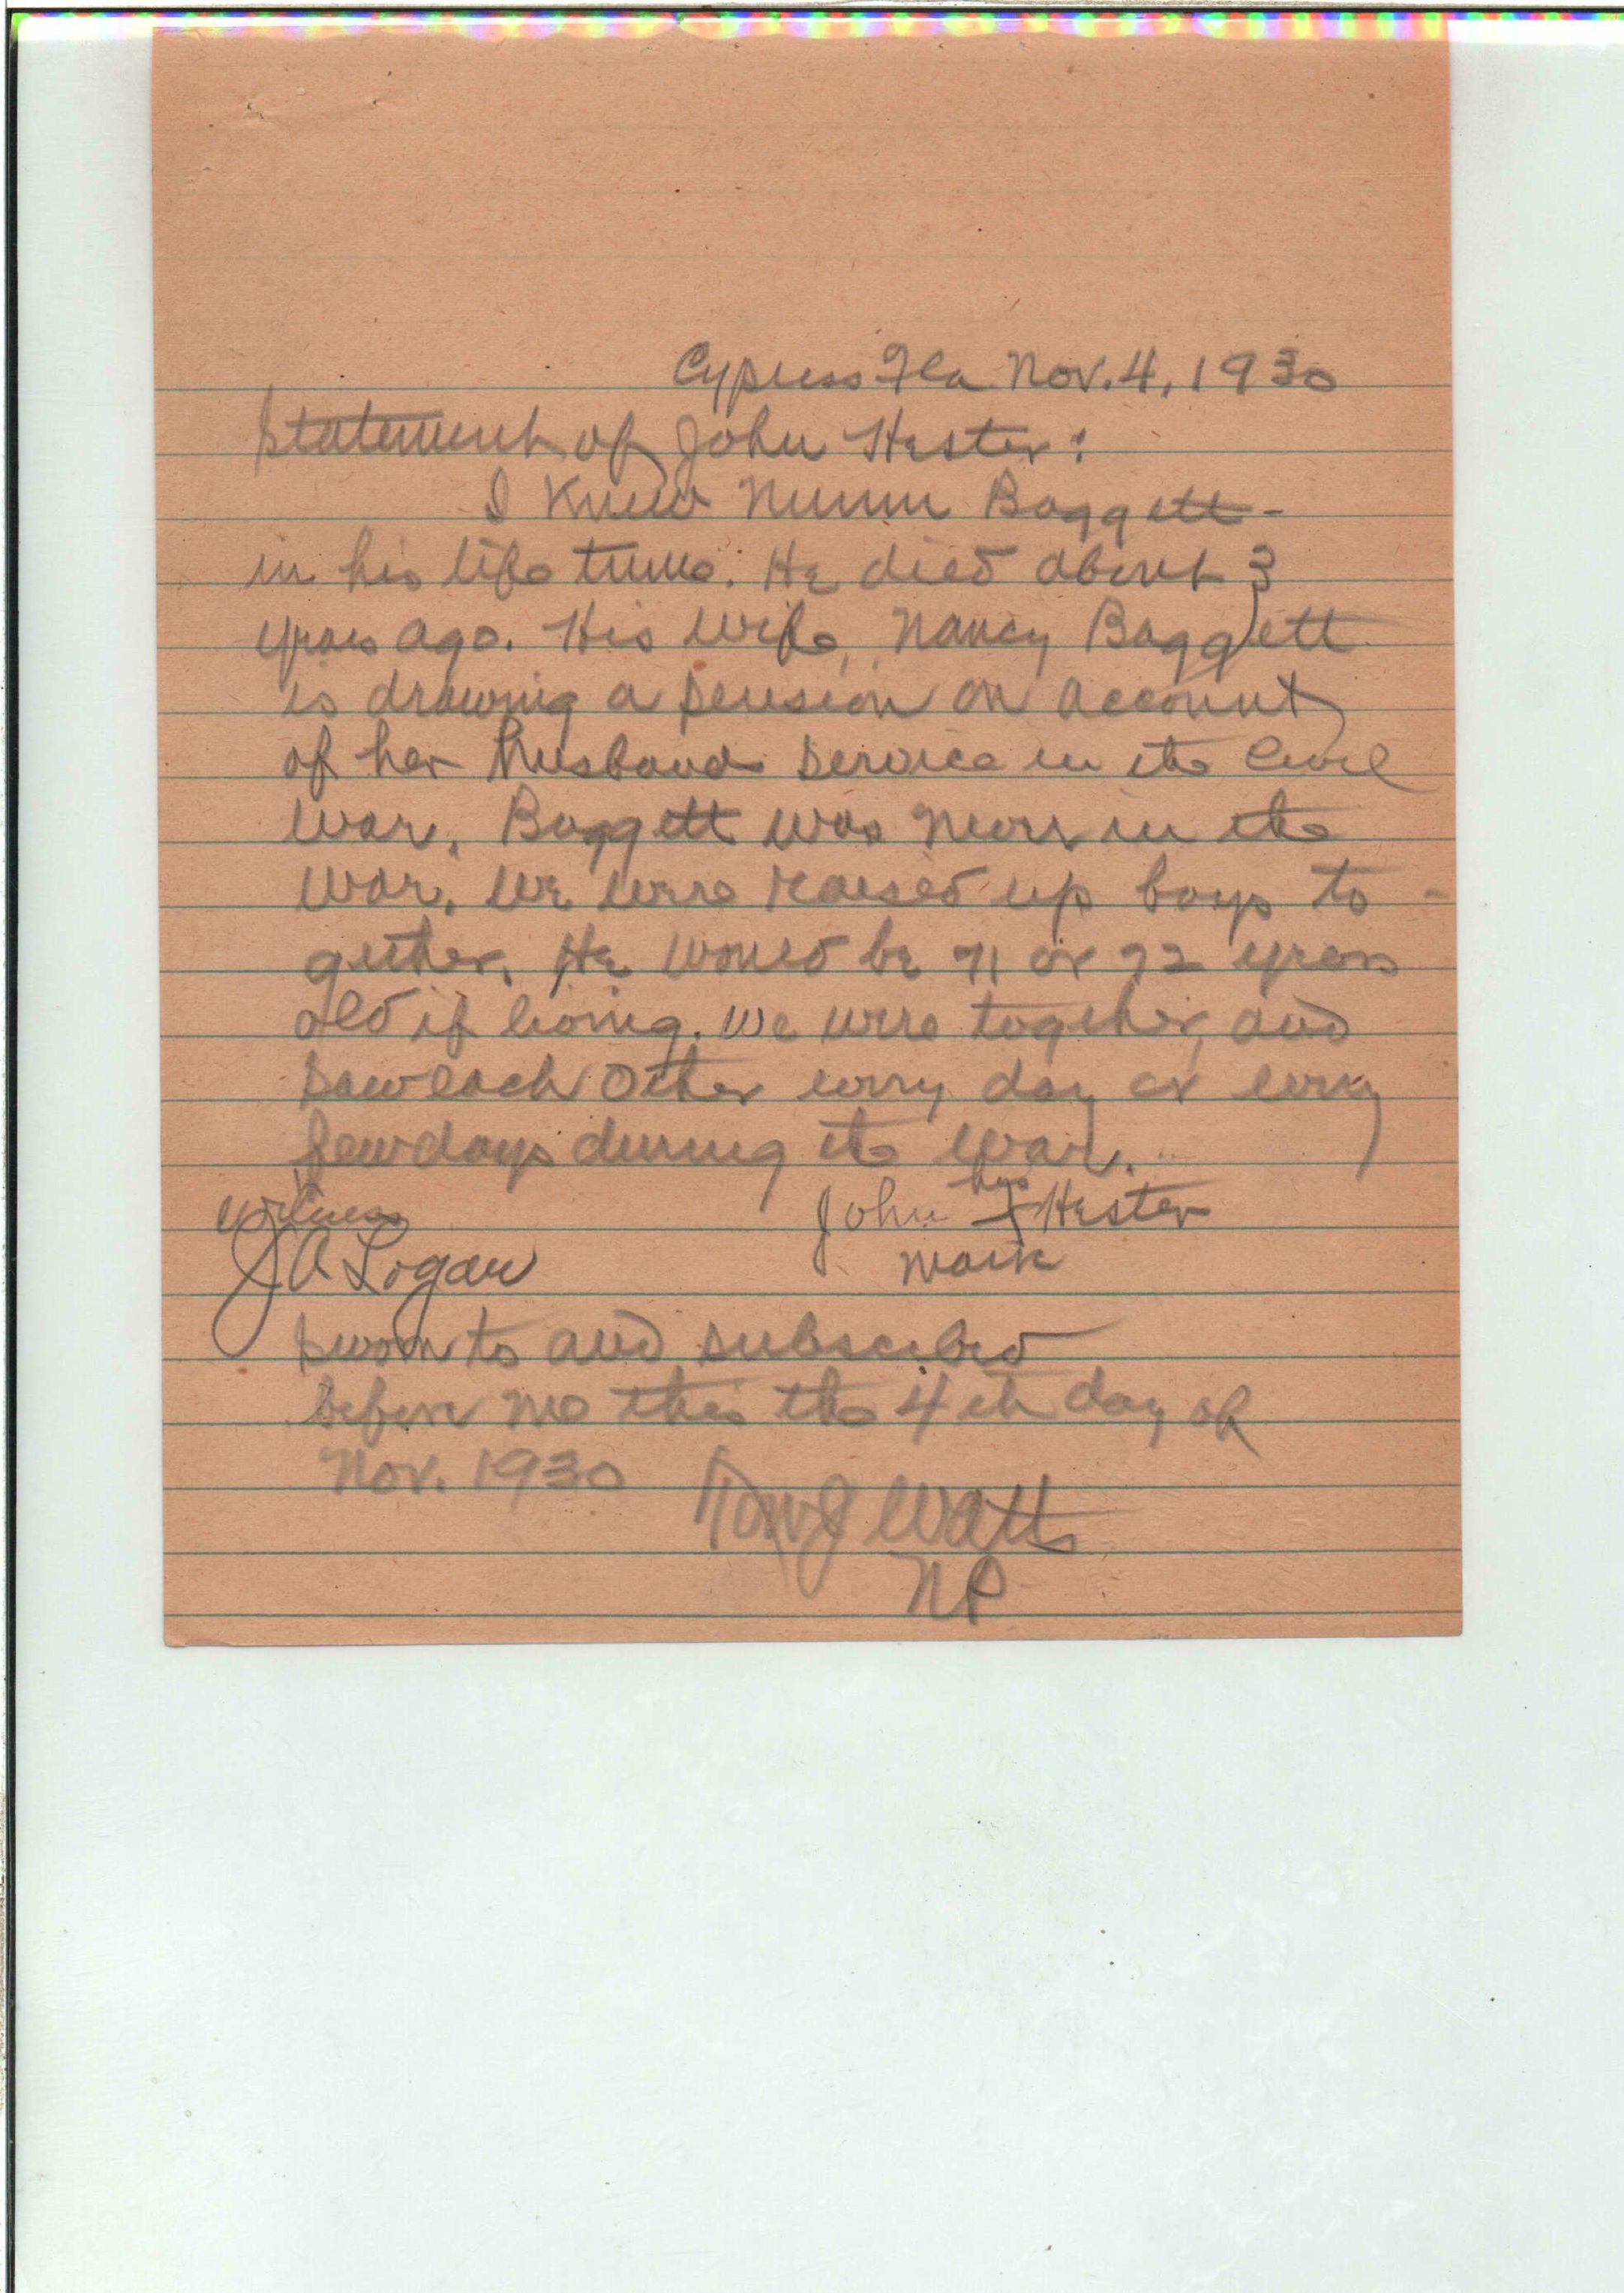 Cypress Fla Nov. 4, 1930
Statement of John Hester:
I Knew Baggett
in his life time. He died about 3
years ago. His wife, Nancy Baggett
is drawing a pension on account
of her husbands service in the Civil
War. Baggett was never in the
War. We were raised up boys to-
gether. He would be 71 or 72 years
old if living. We were together, and
saw each other every day or every
few days during the war.
his
John X Hester
mark
Witness
J A Logan
Sworn to and subscribed
before me this the 4th day of
Nov. 1930
Watts
NP